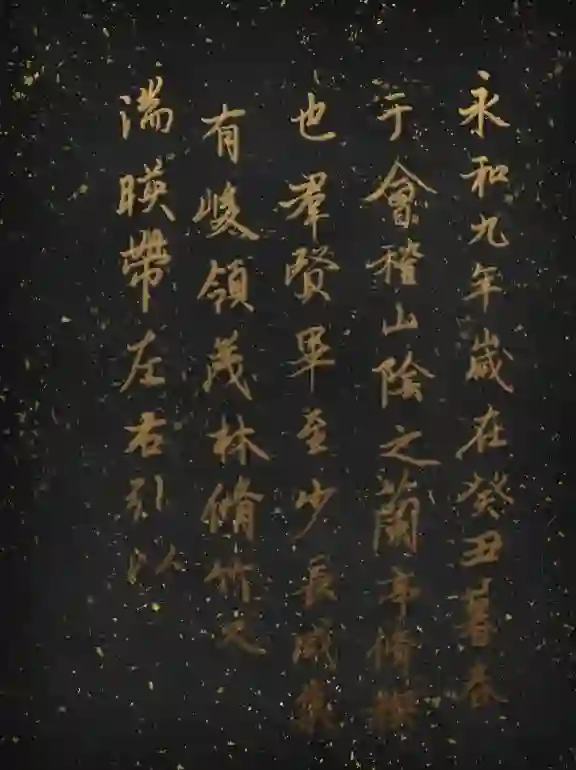 永和九年歲在癸丑暮春
于會稽山陰之蘭亭脩稧
也羣賢畢至少長咸集
有峻領茂林脩竹又
湍暎帶左右引以